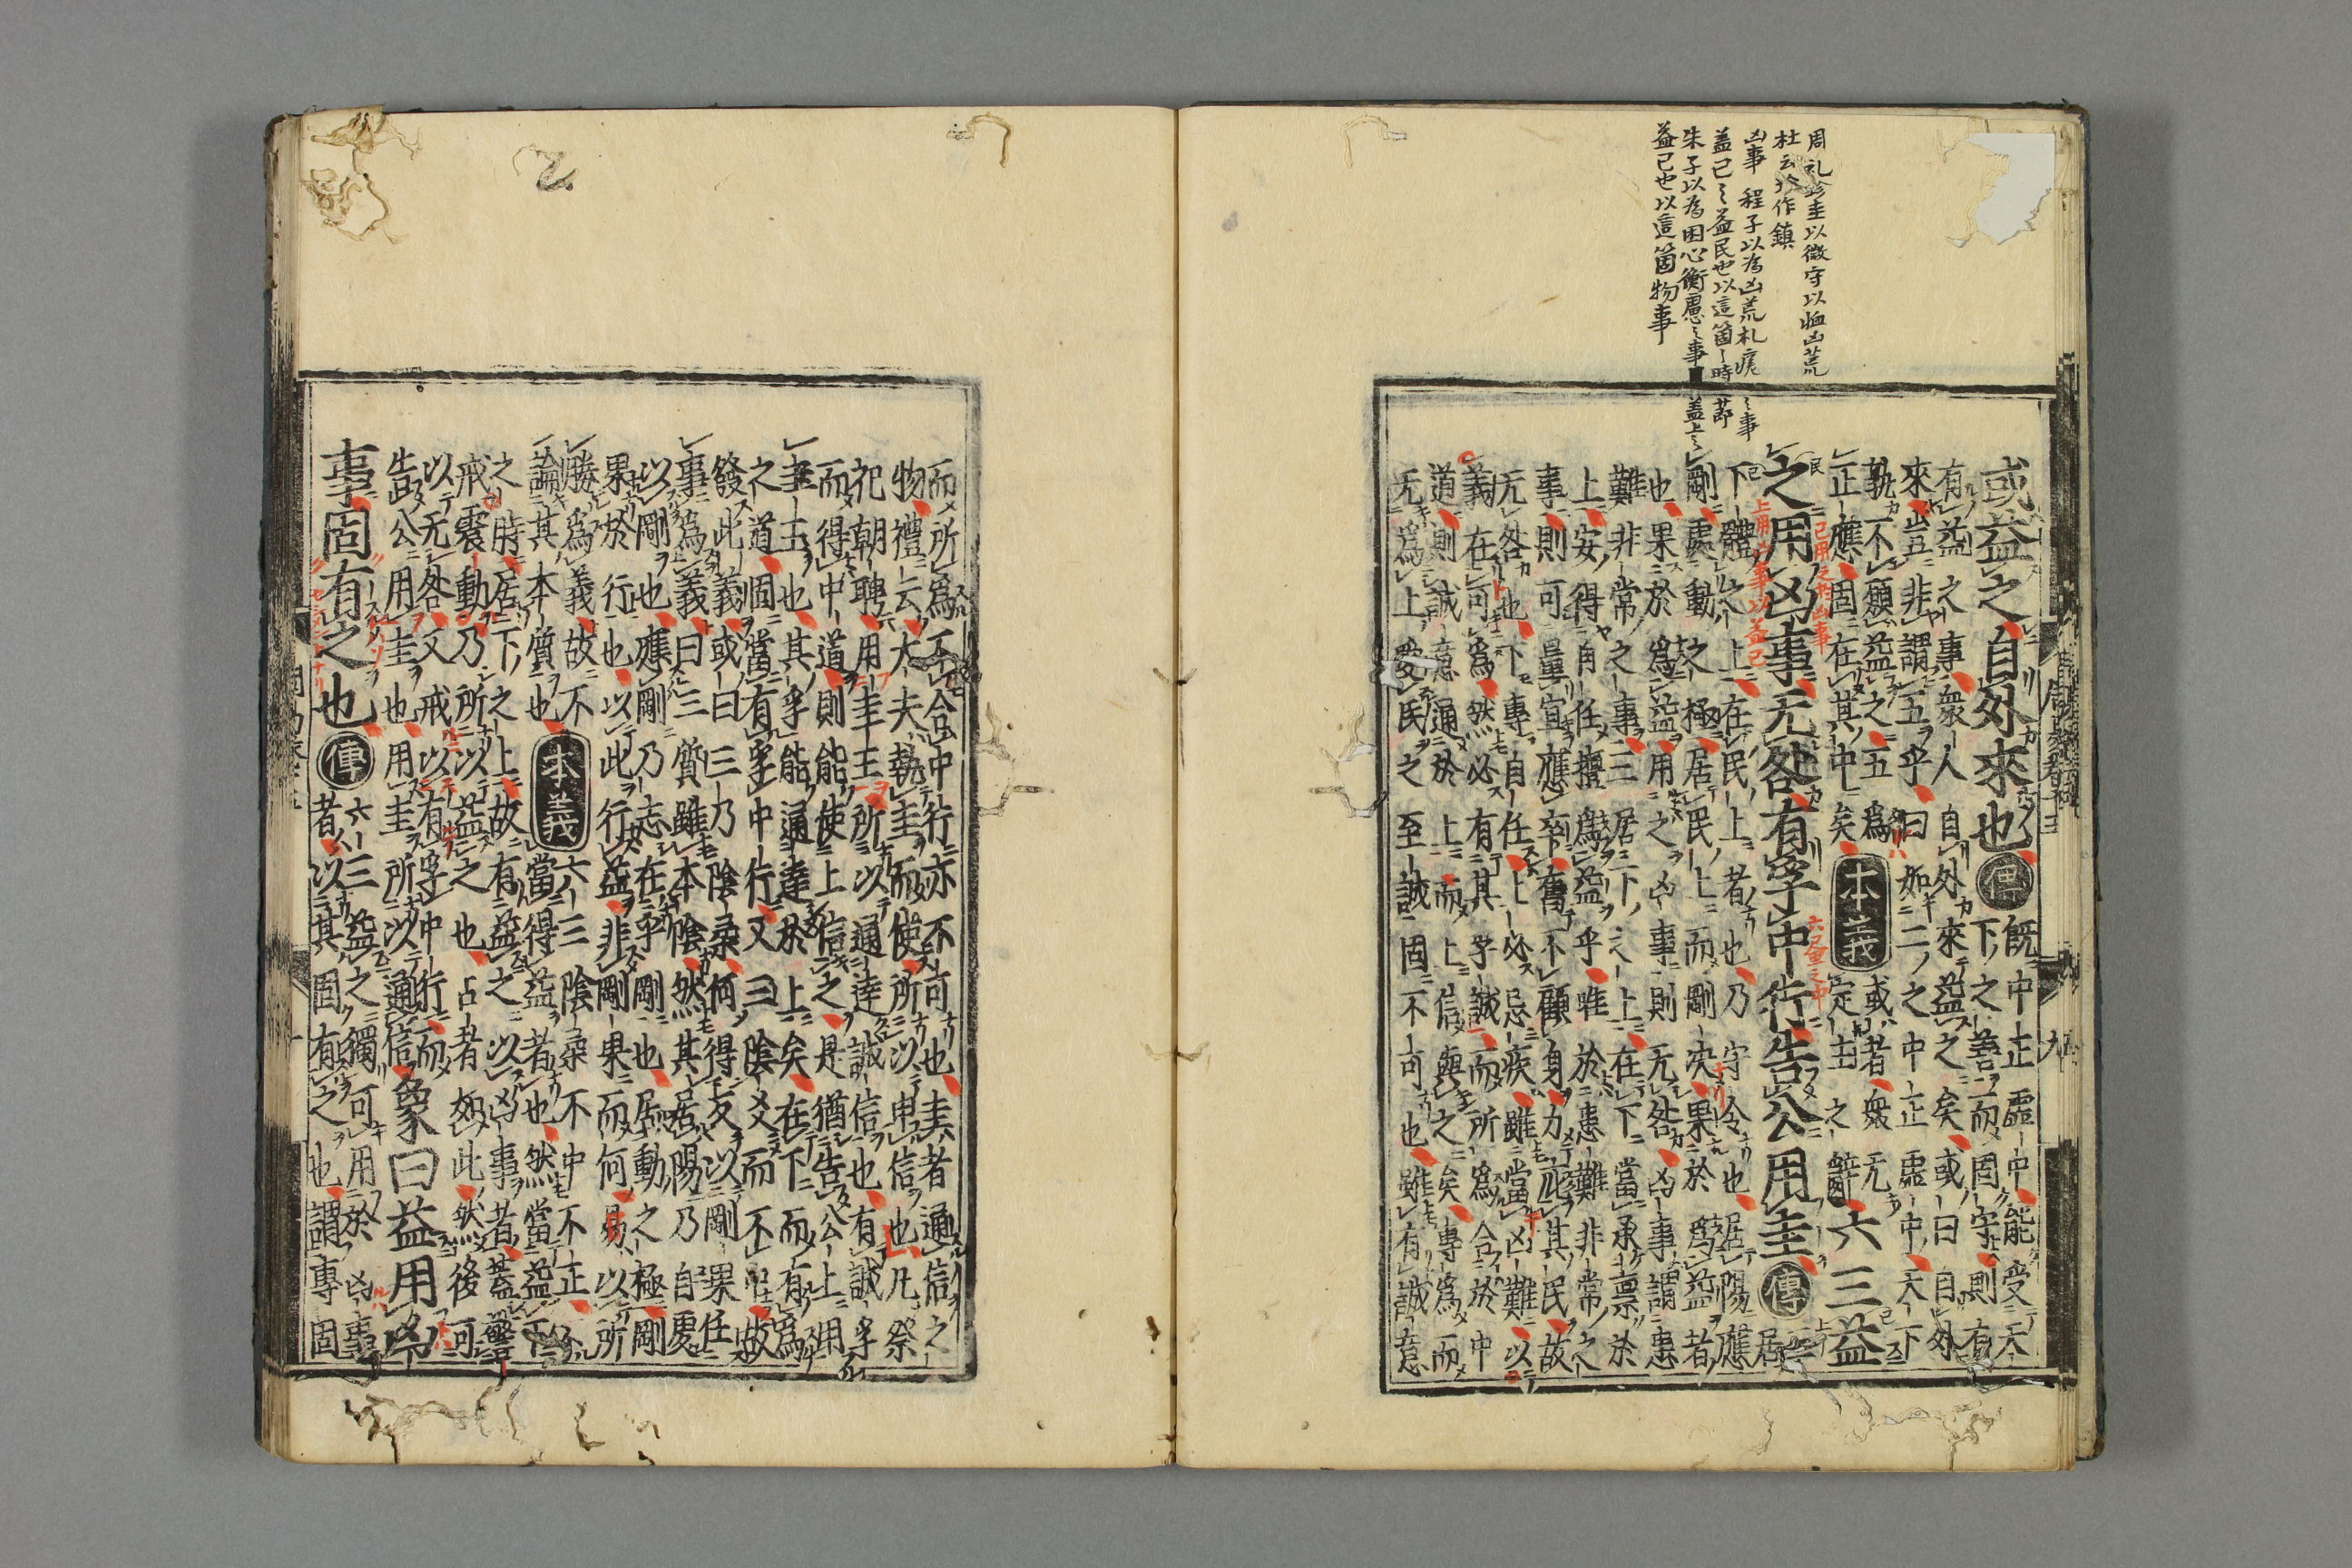 周礼珍圭以徵守以恤凶荒
杜云珍作鎮
凶事 程子以為凶荒札瘥之事
蓋己之益民也以這箇時節
朱子以為困心衡慮之事蓋上之
益己也以這箇物事
或益之自外來也傳既中正虛中能受天
下之善而固守則有
有益之事衆人自外來益之矣或曰自外
來豈非謂五乎曰如二之中正虛中天下
孰不願益之五爲
正應固在其中矣
本義
或者衆无
定主之辭
六三益
之用凶事无咎有孚中行告公用圭傳三居
下體之上在民上者也乃守令也居陽應
剛處動之極居民上而剛決果於爲益者
也果於爲益用之凶事則无咎凶事謂患
難非常之事三居下之上在下當承稟於
上安得自任擅爲益乎唯於患難非常之
事則可量宜應卒奮不顧身力庇其民故
无咎也下專自任上必忌疾雖當凶難以
義在可爲然必有其孚誠而所爲合於中
道則誠意通於上而上信與之矣專爲而
无爲上愛民之至誠固不可也雖有誠意
而所爲不合中行亦不可也圭者通信之
物禮云大夫執圭而使所以申信也凡祭
祀朝聘用圭王所以通達誠信也有誠孚
而得中道則能使上信之是猶告公上用
圭玉也其孚能通達於上矣在下而有爲
之道固當有孚中行又三陰爻而不中故
發此義或曰三乃陰柔何得反以剛果任
事爲義曰三質雖本陰然其居陽乃自處
以剛也應剛乃志在乎剛也居動之極剛
果於行也以此行益非剛果而何易以所
勝爲義故不
論其本質也
本義
六三陰柔不中不正不
當得益者也然當益下
之時居下之上故有益之以凶事者蓋警
戒震動乃所以益之也占者如此然後可
以无咎又戒以有孚中行而
告公用圭也用圭所以通信
象曰益用凶
事固有之也傳六三益之獨可用於凶事
者以其固有之也謂專固